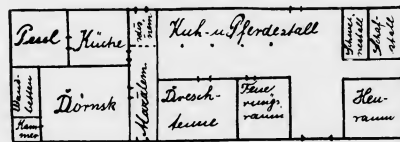 Pesel
Küche
Kuh- u. Pferdestall
Schwei-
nestall
Schaf-
stall
Wand-
betten
Kam-
mer
Dörnsk
Dresch-
tenne
Feue-
rungs-
raum
Heu-
raum